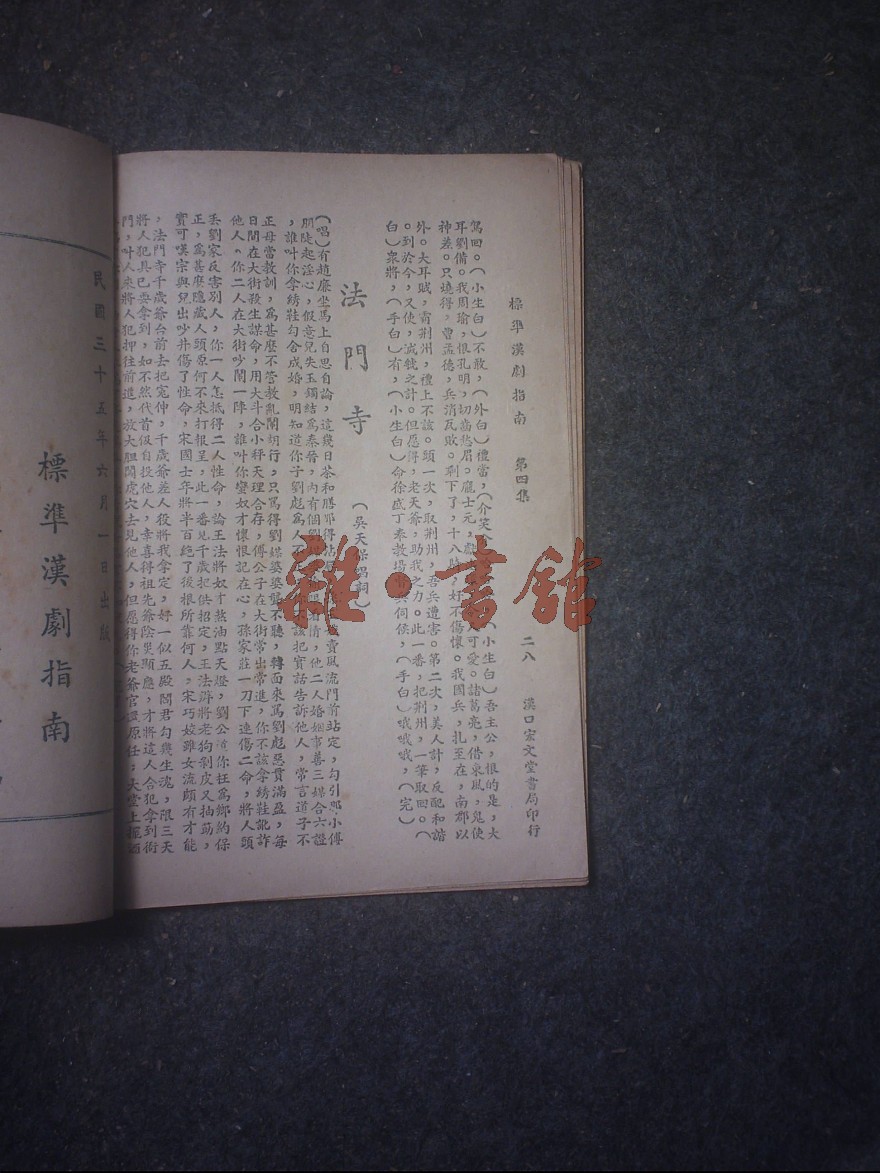 標準漢劇指南　第四集　二八　漢口宏文堂書局印行
駕回。(小生白)不敢,(外白)禮當,(介笑 (小生白)吾主公,恨的是,大
耳劉備。我周瑜,恨孔明,切齒愁眉。龐士元, 可愛。諸葛亮,借東風,鬼使
神差。只燒得,曹孟德,兵消瓦敗。剩下了,十八騎,好不傷懷。我國兵,扎至在,南郡以
外。大耳賊,霸荆州,禮上不該。頭一次,取荆州,吾兵遭害。第二次,美人計,反配和諧
。到於今,又使, 之計。但愿得,老天爺,助我之力。此一番,把荆州,一筆取回。(
白)衆將,(手白)有,(小生白)命徐盛丁奉教場 兵伺侯,(手白)哦哦哦,(完)
法門寺
(吳天保唱詞)
(唱)有趙廉坐馬上自思自論,這幾日茶和膳耶得沾 賣風流門前站定,勾引那小傅
朋陡起淫心,假意兒失玉鐲結爲秦晉,內有個劉 情,他二人婚姻事善三媒合六證
,誰叫你拿绣鞋勾合成婚,明知道你子劉彪爲人不 你不該把實話告訴他人,常言道子不
正母當教訓,爲甚麼不管教亂鬧胡行,只罵得劉媒婆婆 不聽,轉面來罵劉彪惡貫滿盈,每
日間在大街殺生謀命,用大斗合小秤天理合存,傅公子在大街常出常進,你不該拿绣鞋訛詐
他人。你二人在大街吵鬧一陣,誰叫你 奴才懷恨記在心,孫家莊一刀下連傷二命,將人頭
丢劉家反害別人,你一人怎抵得二人性命,論王法將奴才熬油點天燈,劉公道你枉爲鄉約保
正,爲甚麼隱藏人頭原何不來打根呈,此一番見千歲把供招定,王法 將老狗剝皮又抽筋,
實可嘆宗與兒出吵井傷了性命,宋國士年將半百絶了後根所靠何人,宋巧姣雖女流頗有才能
,法門寺千歲爺台前去把寃伸,千歲爺差人役將我拿定,好一似五殿閻君勾 生魂,限三天
將人犯具已要拿到,如不然代首級自投他人,幸喜得祖先爺陰 顯應,才將這人合犯拿到衙
門,叫人來將人犯押往前進,放大胆闖虎穴去見他人,但愿得你老爺官還原任,大堂上
民國三十五年六月一日出版
標準漢劇指南
雜·書館